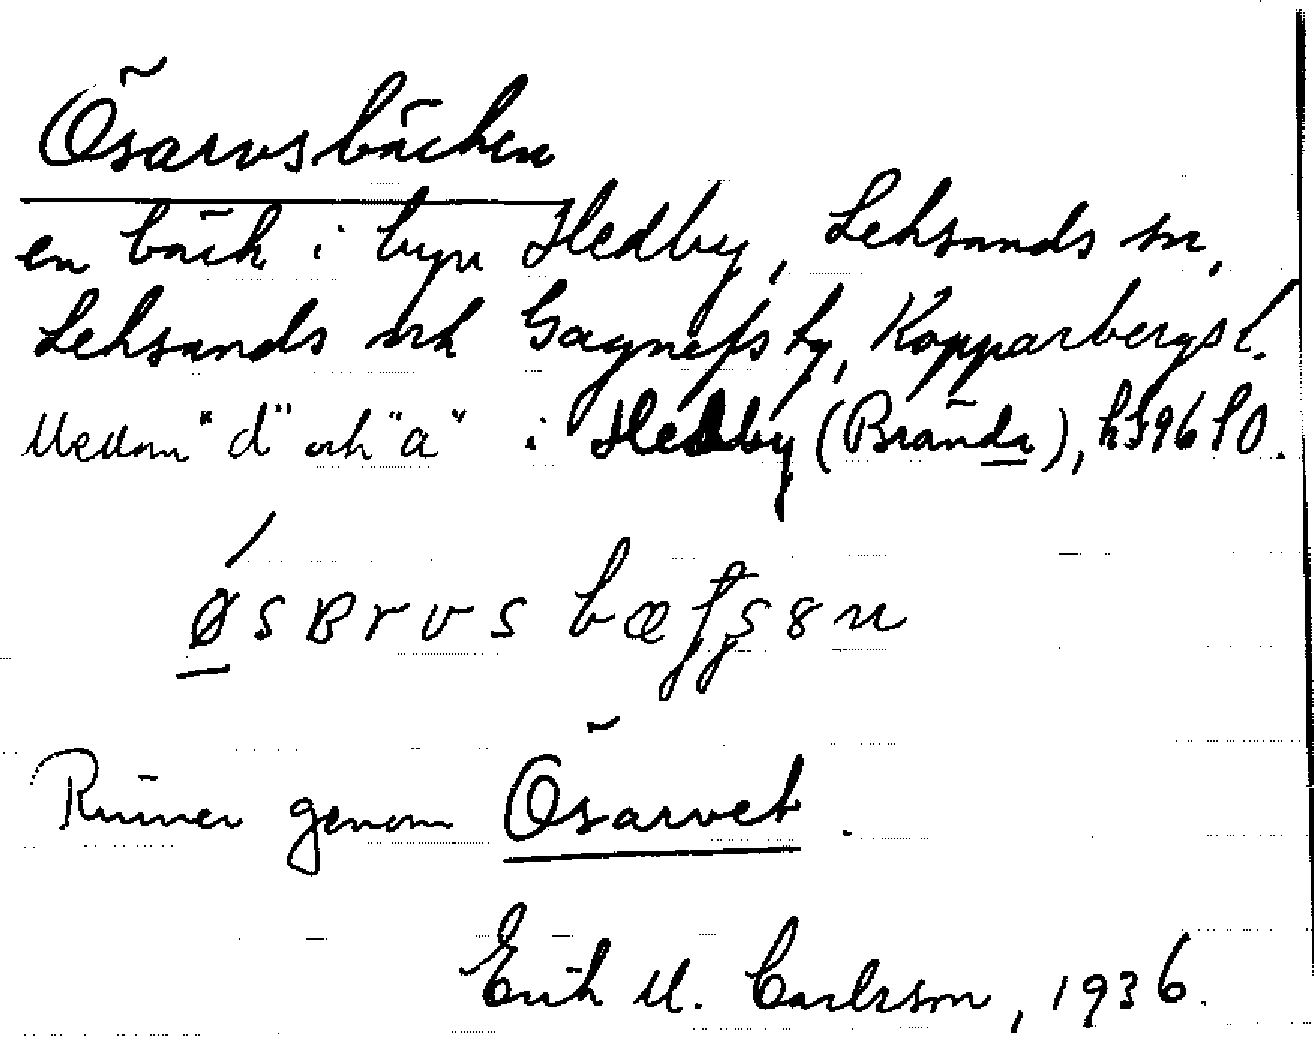 Ösarvsbäcken
en bäck i byn Hedby, Leksands sn,
Leksands och Gagnefs tg, Kopparbergs l.
Mellan "d" och "a" i Hedby (Brända), h5961O.
øsɐrvs bæʃʂ8n
Rinner genom Ösarvet.
Erik M. Carlsson, 1936.